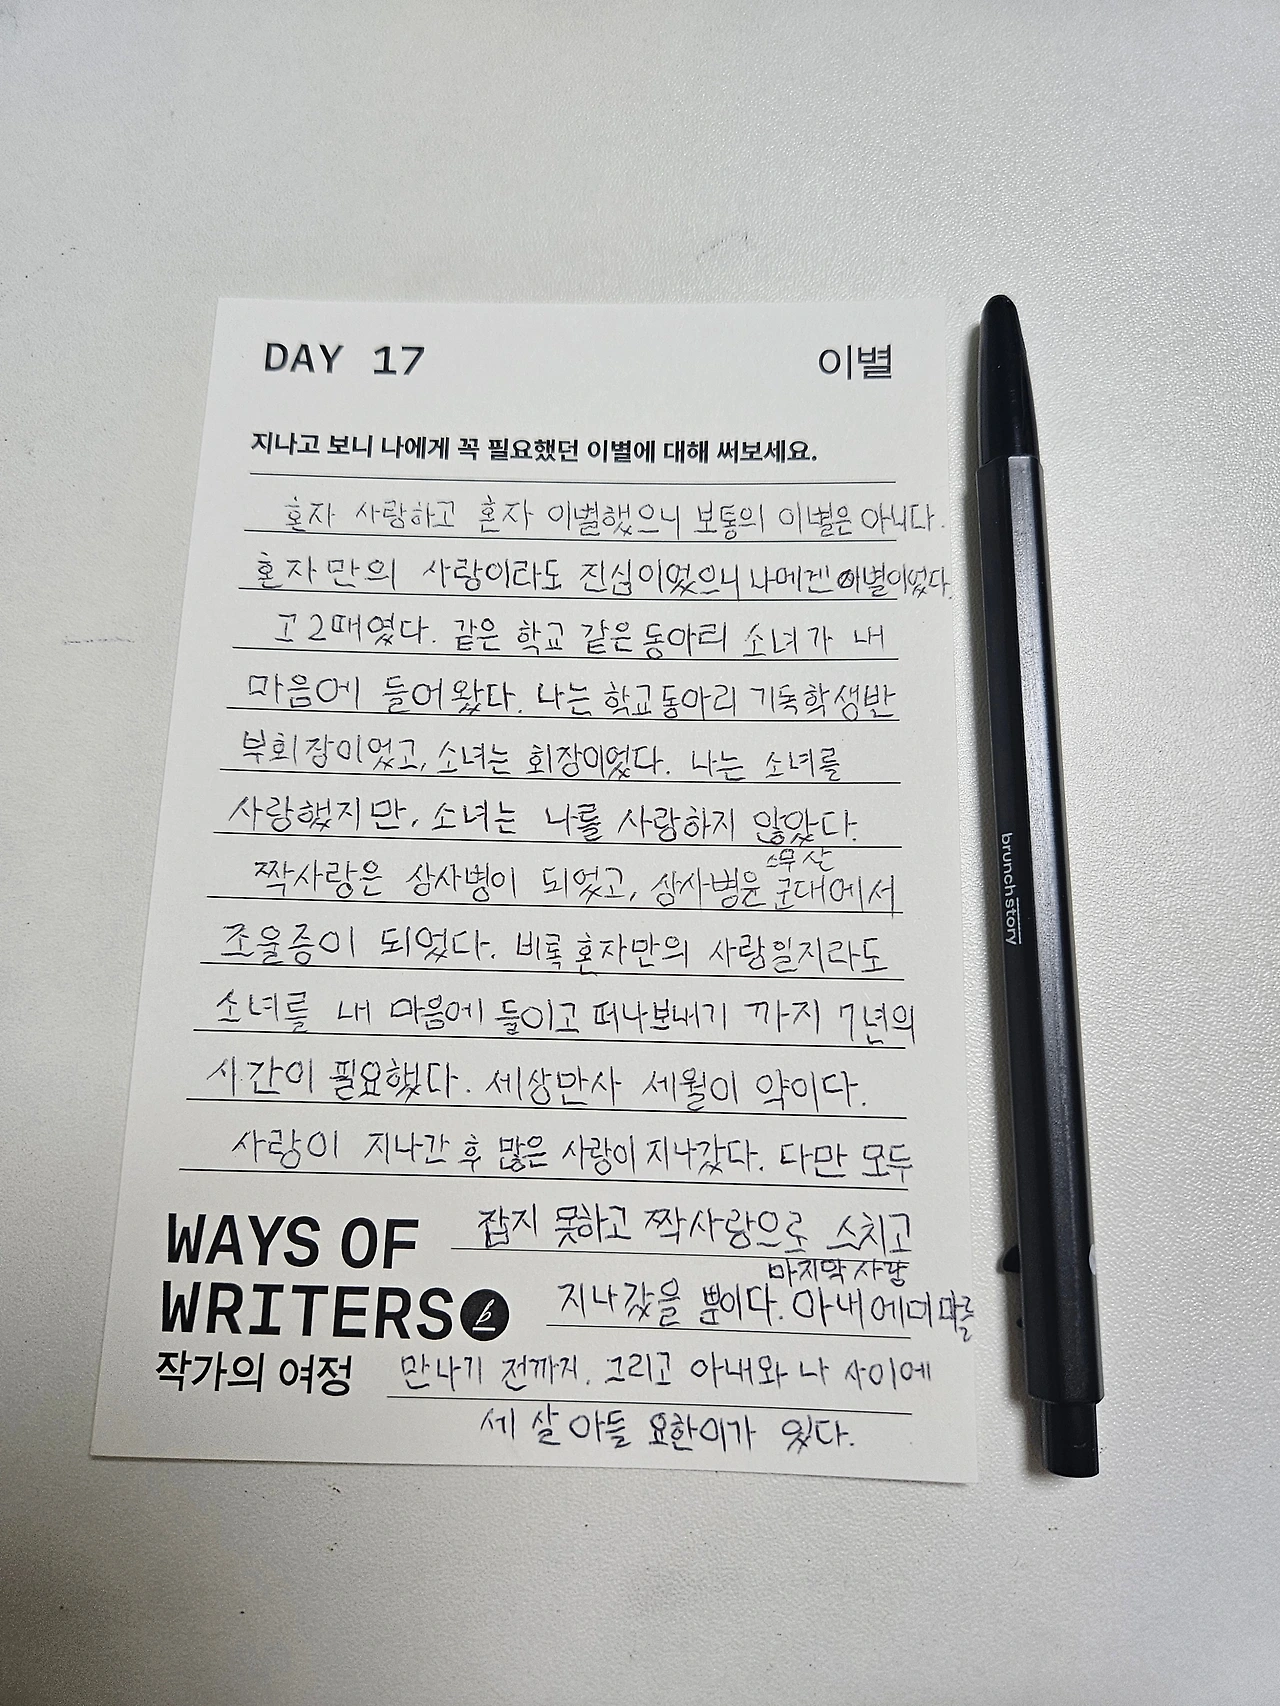 DAY 17
이별
지나고 보니 나에게 꼭 필요했던 이별에 대해 써보세요.
혼자 사랑하고 혼자 이별했으니 보통의 이별은 아니다.
혼자만의 사랑이라도 진심이었으니 나에겐 이별이었다.
고2때였다. 같은 학교 같은 동아리 소녀가 내
마음에 들어왔다. 나는 학교동아리 기독학생반
부회장이었고, 소녀는 회장이었다. 나는 소녀를
사랑했지만, 소녀는 나를 사랑하지 않았다.
스무 살
짝사랑은 상사병이 되었고, 상사병은 군대에서
조울증이 되었다. 비록 혼자만의 사랑일지라도
소녀를 내 마음에 들이고 떠나보내기 까지 7년의
시간이 필요했다. 세상만사 세월이 약이다.
사랑이 지나간 후 많은 사랑이 지나갔다. 다만 모두
잡지 못하고 짝사랑으로 스치고
마지막 사랑
지나갔을 뿐이다. 아내 에미마를
만나기 전까지. 그리고 아내와 나 사이에
세 살 아들 요한이가 있다.
WAYS OF
WRITERS
작가의 여정
brunchstory